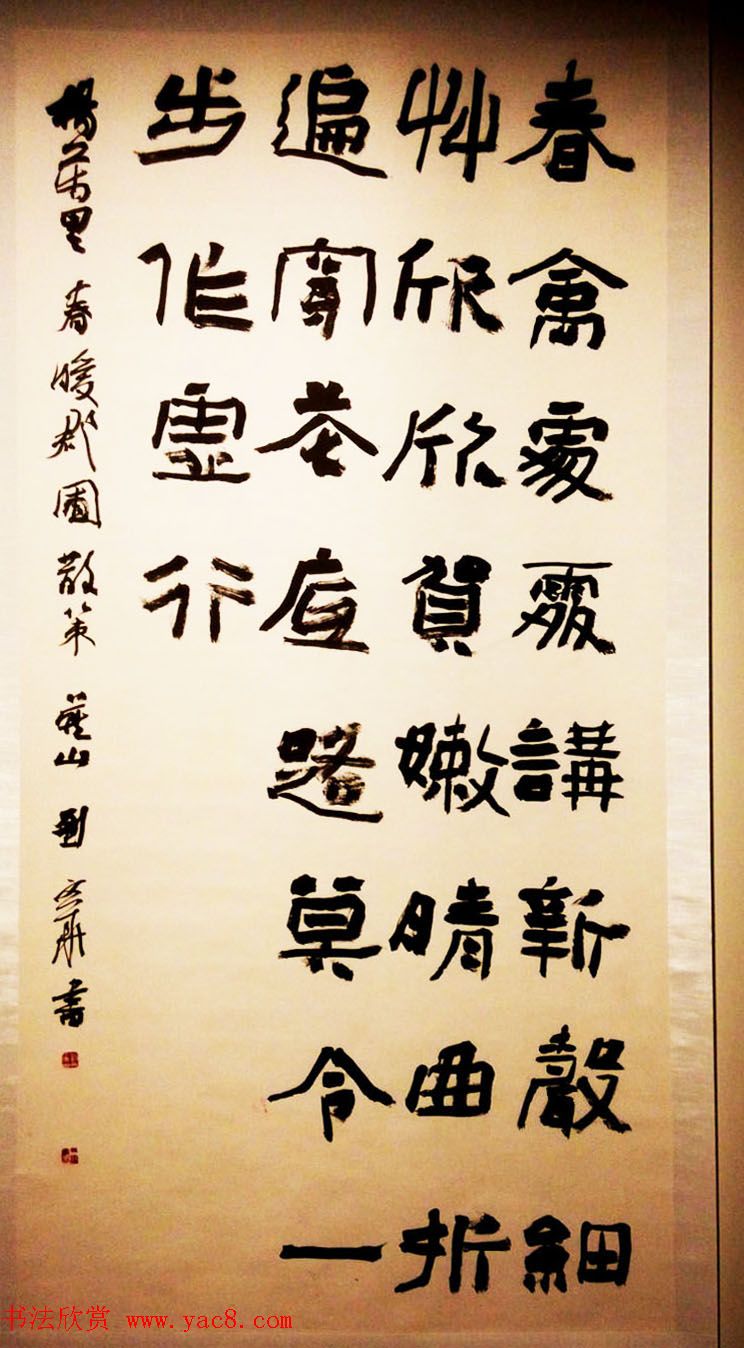 春禽處處講新聲細
艸欣欣賀嫩晴曲折
遍穿花底路莫令一
步作虛行
楊萬里春暖郡圃散策 燕山劉文華書
书法欣赏 www.yac8.com